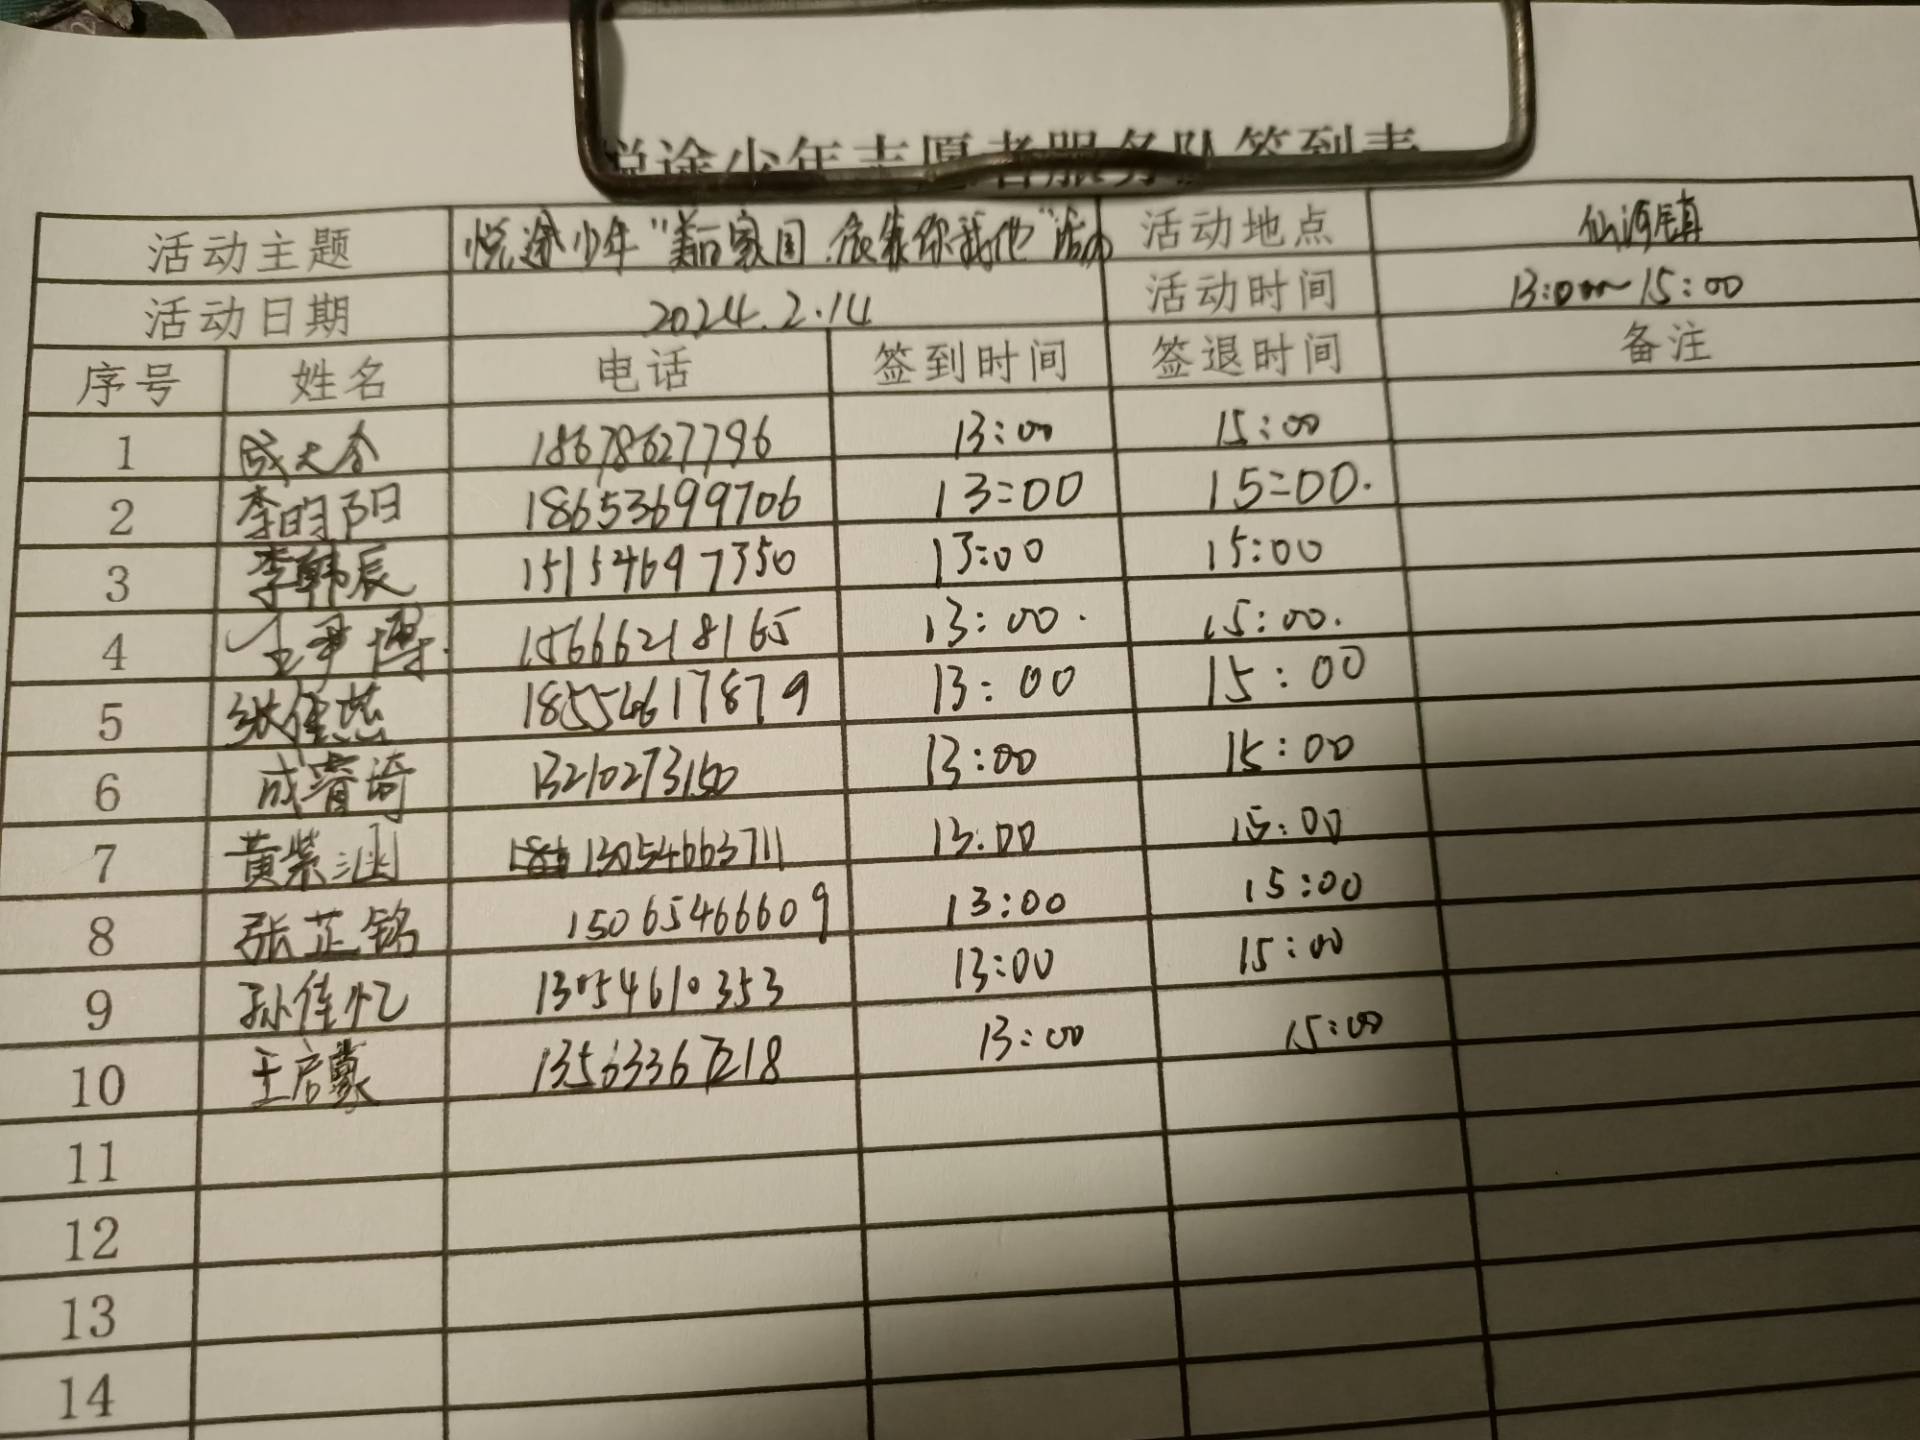 悦途少年志愿者服务队签到表
活动主题 悦途少年"美丽家园.依靠你我他"活动 活动地点 仙河镇
活动日期 2024.2.14 活动时间 13:00~15:00
序号 姓名 电话 签到时间 签退时间 备注
1 成大 18678627796 13:00 15:00
2 李昀阳 18653699706 13:00 15:00.
3 李韩辰 15154697350 13:00 15:00
4 博. 15666218165 13:00. 15:00.
5 张佳芯 18554617879 13:00 15:00
6 成睿琦 13210273150 13:00 15:00
7 黄紫涵 13054663711 13:00 15:00
8 张芷铭 15065466609 13:00 15:00
9 孙佳忆 13054610353 13:00 15:00
10 王启蒙 13563367218 13:00 15:00
11
12
13
14